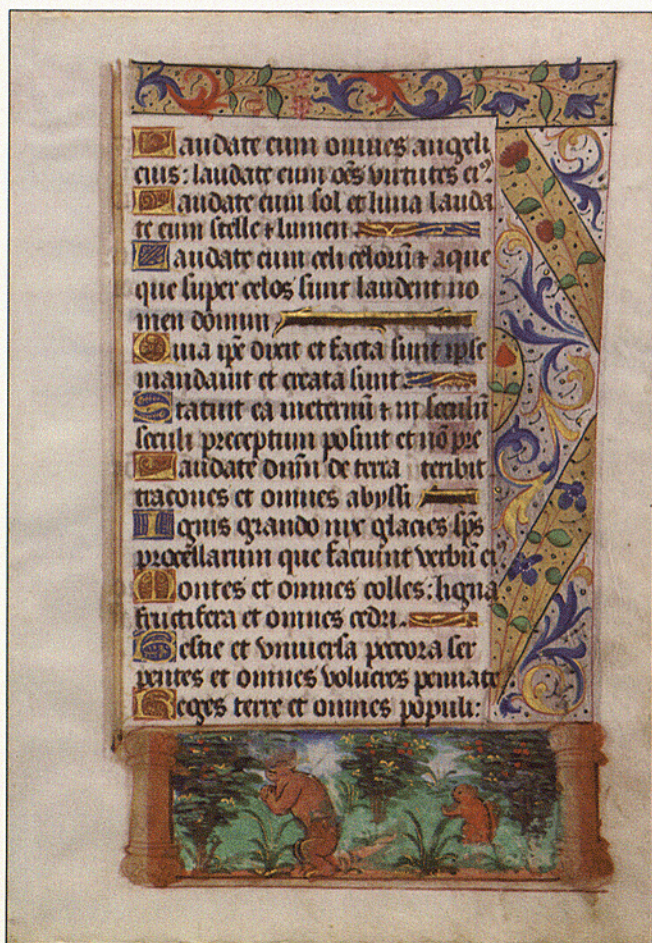 Laudate eum omnes angeli
eius: laudate eum oēs virtutes ei⁹.
Laudate eum sol et luna lauda
te eum stelle ⁊ lumen
Laudate eum celi celorū ⁊ aque
que super celos sunt laudent no
men domini
Quia ip̄e dixit et facta sunt ip̄se
mandavit et creata sunt.
Statuit ea ineternū ⁊ in seculū
seculi preceptum posuit et nō pre
Laudate dn̄m de terra teribit
tracones et omnes abyssi
Ignis grando nix glacies sp̄s
procellarum que faciunt verbū ei⁹
Montes et omnes colles: ligna
fructifera et omnes cedri.
Bestie et vniuersa pecora ser
pentes et omnes volucres pennate
Reges terre et omnes populi: